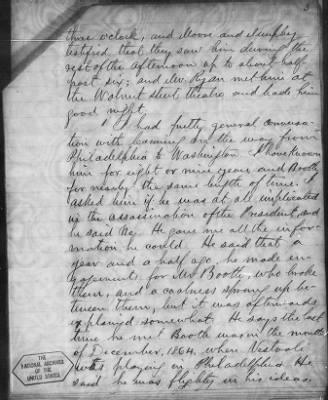 three o'clock, and Moore and Murphy
testified that they saw him during the
rest of the afternoon up to about half
past six; and Mr. Ryan met him at
the Walnut street theatre and bade him
good night.
I had pretty general conversa-
tion with coming on the way from
Philadelphia to Washington. I have known
him for eight or nine years, and Booth
for nearly the same length of time. I
asked him if he was at all implicated
in the assassination of the President, and
he said No. He gave me all the infor-
mation he could. He said that a
year and a half ago, he made en-
gagements for Mr Booth, who broke
them, and a coolness sprung up be-
tween them, but it was afterwards
explained somewhat. He says the last
time he met Booth was in the month
of December, 1864, when Vestvali
was playing in Philadelphia. He
said he was flighty in his ideas.
THE
NATIONAL ARCHIVES
OF THE
UNITED STATES